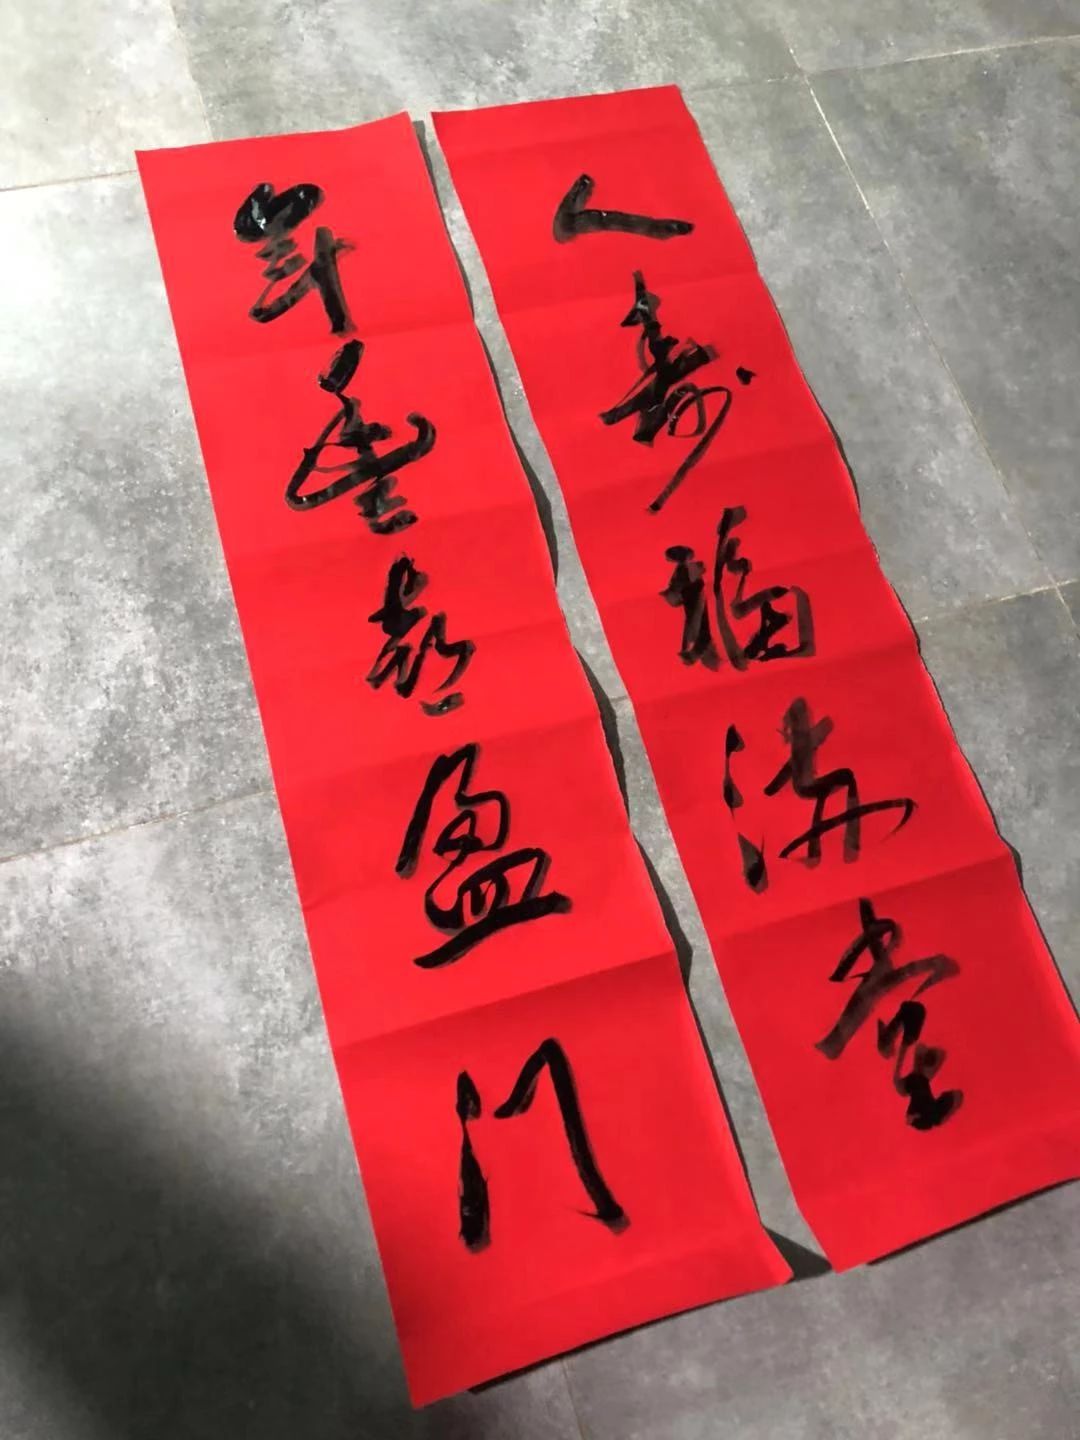 人寿福满堂
年丰喜盈门